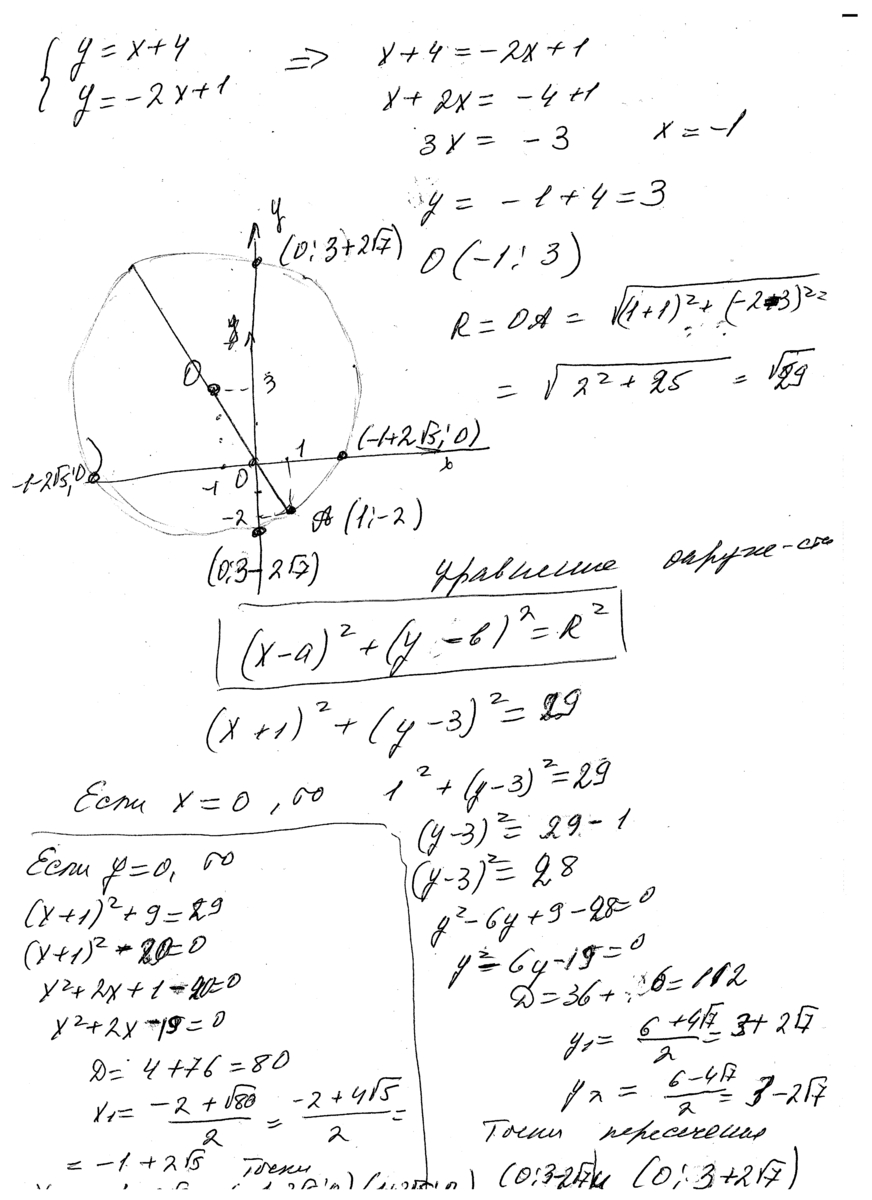 { y = x+4 => x+4 = -2x+1
y = -2x+1 x + 2x = -4+1
3x = -3 x = -1
y = -1+4 = 3
O(-1; 3)
R = OA = √(1+1)²+(-2-3)² =
= √2²+25 = √29
y
(0; 3+2√7)
O
3
(-1+2√5; 0)
-1-2√5; 0
-1
0
1
x
-2
A (1; -2)
(0; 3-2√7)
Уравнение окруж-сти
(x-a)² + (y-b)² = R²
(x+1)² + (y-3)² = 29
Если x = 0, то 1² + (y-3)² = 29
(y-3)² = 29-1
(y-3)² = 28
y²-6y+9-28=0
y²-6y-19=0
D=36+ 6=112
y₁ = (6+4√7)/2 = 3+2√7
y₂ = (6-4√7)/2 = 3-2√7
Точки пересечения
(0; 3-2√7) и (0; 3+2√7)
Если y=0, то
(x+1)²+9=29
(x+1)²-20=0
x²+2x+1-20=0
x²+2x-19=0
D= 4+76=80
x₁= (-2+√80)/2 = (-2+4√5)/2 =
= -1+2√5 Точки